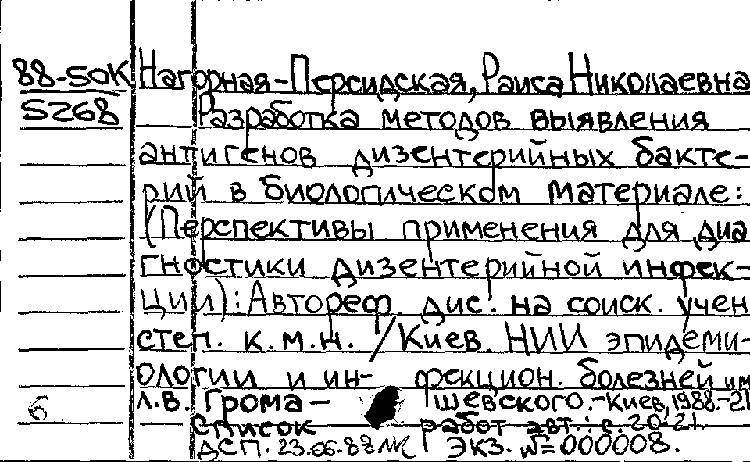 88-50К Нагорная-Персидская, Раиса Николаевна
5268 Разработка методов выявления
антигенов дизентерийных бакте-
рий в биологическом материале:
(Перспективы применения для диа
гностики дизентерийной инфек-
ции): Автореф. дис. на соиск. учен
степ. к.м.н. / Киев. НИИ эпидеми-
ологии и ин- фекцион. болезней им
6 Л.В. Грома- шевского.-Киев, 1988.-21
Список работ авт.: с. 20-21.
ДСП. 23.06.88 Экз. №=000008.